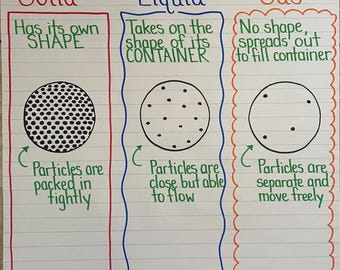 Solid
Has its own
SHAPE
Particles are
packed in
tightly
Liquid
Takes on the
shape of its
CONTAINER
Particles are
close but able
to flow
Gas
No shape,
spreads out
to fill container
Particles are
separate and
move freely